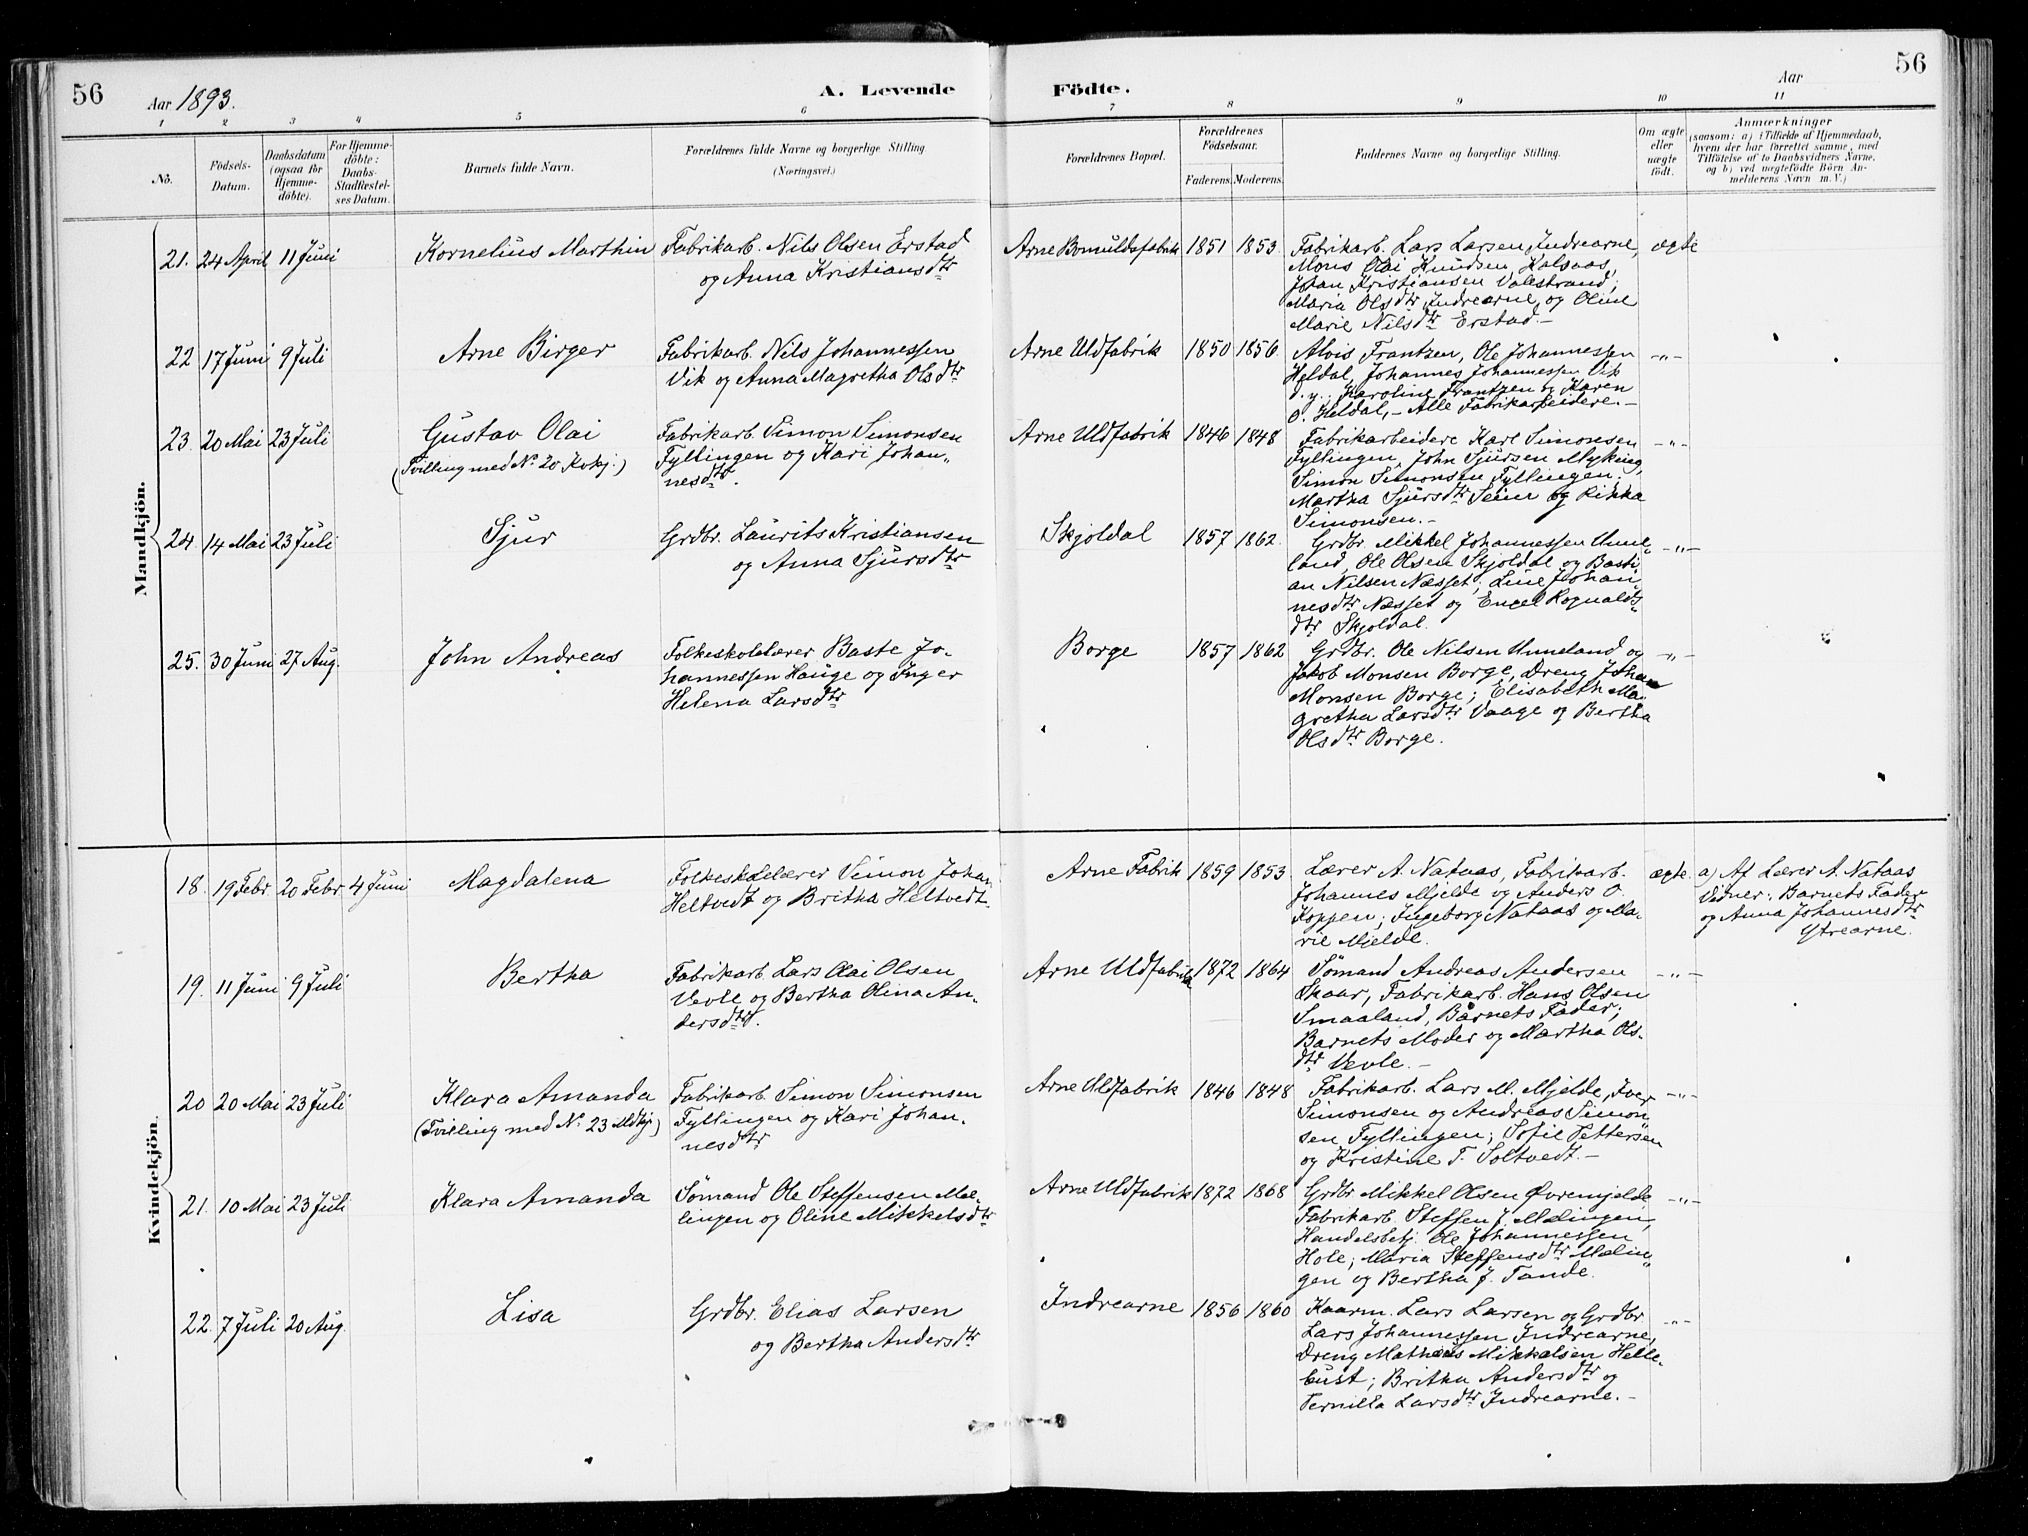 56
Aar 1893.
A. Levende Födte.
Aar
56
1 2 3 4 5 6 7 8 9 10 11
No.
Födsels-Datum.
Daabsdatum (ogsaa for Hjemmedöbte).
For Hjemmedöbte: Daabs-Stadfæstelses Datum.
Barnets fulde Navn.
Forældrenes fulde Navne og borgerlige Stilling.
(Næringsvei.)
Forældrenes Bopæl.
Forældrenes Födselsaar.
Faderens. Moderens.
Faddernes Navne og borgerlige Stilling.
Om ægte eller uægte födt.
Anmærkninger
(saasom: a) i Tilfælde af Hjemmedaab, hvem der har forrettet samme, med Tilföielse af to Daabsvidners Navne, og b) ved uægtefödte Börn Anmelderens Navn m. V.)
Mandkjön.
21. 24 April 11 Juni Kornelius Marthin
Fabrikarb. Nils Olsen Erstad
og Anna Kristiansdtr
Arne Bomuldsfabrik 1851 1853
Fabrikarb. Lars Larsen, Indrearne,
Mons Olai Knudsen Kalsaas,
Johan Kristiansen Valestrand;
Maria Olsdtr Indrearne og Oline
Marie Nilsdtr Erstad.-
ægte
22 17 Juni 9 Juli Arne Birger
Fabrikarb. Nils Johannessen
Vik og Anna Magretha Olsdtr
Arne Uldfabrik 1850 1856.
Alois Frantzen, Ole Johannessen
Heldal, Johannes Johannessen Vik
d. y.; Karoline Frantzen og Karen
O. Heldal,- Alle Fabrikarbeidere.-
-"-
23. 20 Mai 23 Juli Gustav Olai
(Tvilling med No. 20 Kvkj.)
Fabrikarb. Simon Simonsen
Fyllingen og Kari Johan-
nesdtr.
Arne Uldfabrik 1846 1848
Fabrikarbeidere Karl Simonsen
Fyllingen, John Sjursen Myking,
Simon Simonsen Fyllingen;
Martha Sjursdtr Seim og Rikka
Simonsen.-
-"-
24. 14 Mai 23 Juli Sjur
Grdbr. Laurits Kristiansen
og Anna Sjursdtr
Skjoldal 1857 1862.
Grdbr. Mikkel Johannessen Unne-
land, Ole Olsen Skjoldal og Basti-
an Nilsen Næsset; Line Johan-
nesdtr Næsset og Engel Rognalds-
dtr Skjoldal.
-"-
25. 30 Juni 27 Aug. John Andreas
Folkeskolelærer Baste Jo-
hannessen Hauge og Inger
Helena Larsdtr
Borge 1857 1862
Grdbr. Ole Nilsen Unneland og
Jakob Monsen Borge, Dreng Johan
Monsen Borge; Elisabeth Ma-
gretha Larsdtr Vaage og Bertha
Olsdtr Borge.
-"-
Kvindekjön.
18. 19 Febr. 20 Febr 4 Juni Magdalena
Folkeskolelærer Simon Johan
Heltvedt og Britha Heltvedt.
Arne Fabrik 1859 1853.
Lærer A. Nataas, Fabrikarb.
Johannes Mjelde og Anders O.
Koppen; Ingeborg Nataas og Ma-
rie Mjelde.
ægte.
a) Af Lærer A. Nataas
Vidner: Barnets Fader
og Anna Johannesdtr
Ytrearne.
19. 11 Juni 9 Juli Bertha
Fabrikarb. Lars Olai Olsen
Vevle og Bertha Olina An-
dersdtr.
Arne Uldfabrik 1872 1864
Sömand Andreas Andersen
Skaar, Fabrikarb. Hans Olsen
Smaaland, Barnets Fader;
Barnets Moder og Martha Ols-
dtr Vevle.-
-"-
20 20 Mai 23 Juli Klara Amanda
(Tvilling med No. 23 Mdkj.)
Fabrikarb. Simon Simonsen
Fyllingen og Kari Johan-
nesdtr
Arne Uldfabrik 1846 1848
Fabrikarb. Lars M. Mjelde, Iver
Simonsen og Andreas Simon-
sen Fyllingen; Sofie Pettersen
og Kristine T. Soltvedt.-
-"-
21. 10 Mai 23 Juli Klara Amanda
Sömand Ole Steffensen Mæ-
lingen og Oline Mikkelsdtr
Arne Uldfabrik 1872 1868
Grdbr. Mikkel Olsen Övremjelde,
Fabrikarb. Steffen J. Mælingen,
Handelsbetj. Ole Johannessen
Hole; Maria Steffensdtr Mælin-
gen og Bertha J. Tande.
-"-
22. 7 Juli 20 Aug. Lisa
Grdbr. Elias Larsen
og Bertha Andersdtr
Indrearne 1856 1860
Kaarm. Lars Larsen og Grdbr.
Lars Johannessen Indrearne,
Dreng Mathias Mikkelsen Helle-
bust; Britha Andersdtr og
Pernilla Larsdtr Indrearne.-
-"-